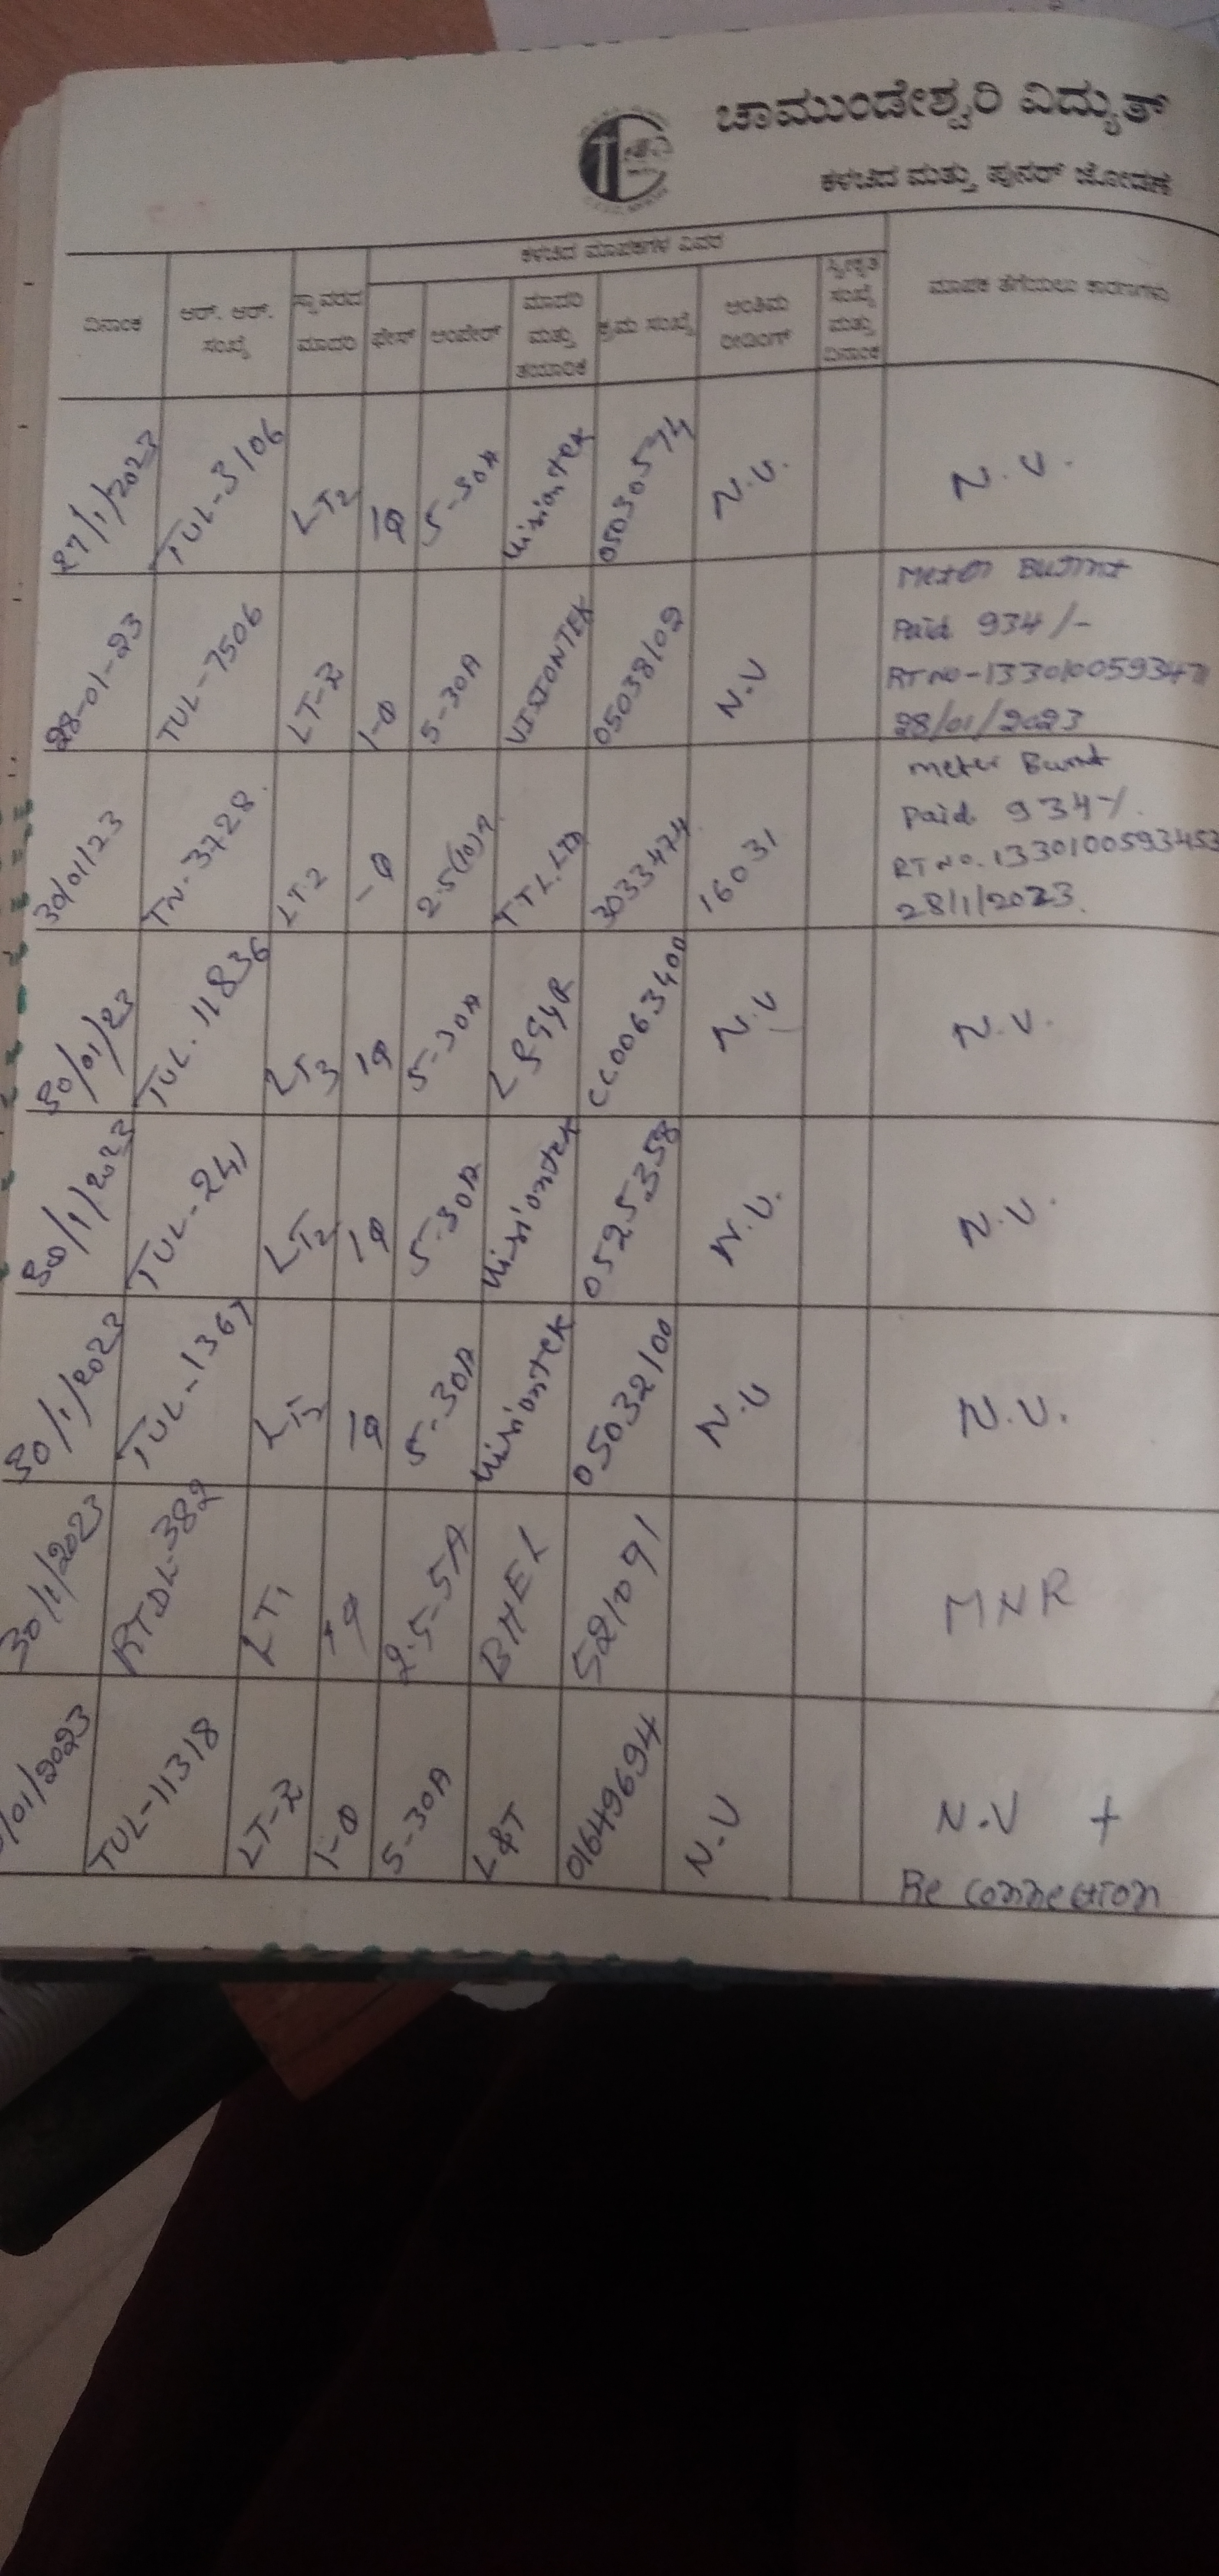 ಚಾಮುಂಡೇಶ್ವರಿ ವಿದ್ಯುತ್
ಕಳಚಿದ ಮತ್ತು ಪುನರ್ ಜೋಡಣೆ
ಕಳಚಿದ ಮಾಪಕಗಳ ವಿವರ
ದಿನಾಂಕ ಆರ್. ಆರ್. ಸಂಖ್ಯೆ ಸ್ಥಾವರದ ಮಾದರಿ ಫೇಸ್ ಅಂಪೇರ್ ಮಾದರಿ ಮತ್ತು ತಯಾರಿಕೆ ಕ್ರಮ ಸಂಖ್ಯೆ ಅಂತಿಮ ರೀಡಿಂಗ್ ಸ್ವೀಕೃತಿ ಸಂಖ್ಯೆ ಮತ್ತು ದಿನಾಂಕ ಮಾಪಕ ತೆಗೆಯಲು ಕಾರಣಗಳು
27/1/2023 TUL-3106 LT2 1Φ 5-30A Visiontek 05030574 N.V. N.V.
28-01-23 TUL-7506 LT-2 1-Φ 5-30A VISIONTEK 05038109 N.V Meter Burnt
Paid 934/-
RT NO-133010059347
28/01/2023
30/01/23 TN-3728. LT2 -Φ 2.5(10)A TTL.LTD 3033474 16031 meter Burnt
Paid 934/.
RT NO. 1330100593453
28/1/2023.
30/01/23 TUL.11836 LT3 1Φ 5-30A L&GYR CC0063400 N.V N.V.
30/1/2023 TUL-241 LT2 1Φ 5-30A Visiontek 0525358 N.V. N.V.
30/1/2023 TUL-1367 LT2 1Φ 5-30A Visiontek 05032100 N.V N.V.
30/1/2023 RTDL-382 LT1 1Φ 2.5-5A BHEL 521091 MNR
/01/2023 TUL-11318 LT-2 1-Φ 5-30A L&T 01649694 N.V N.V +
Re connection